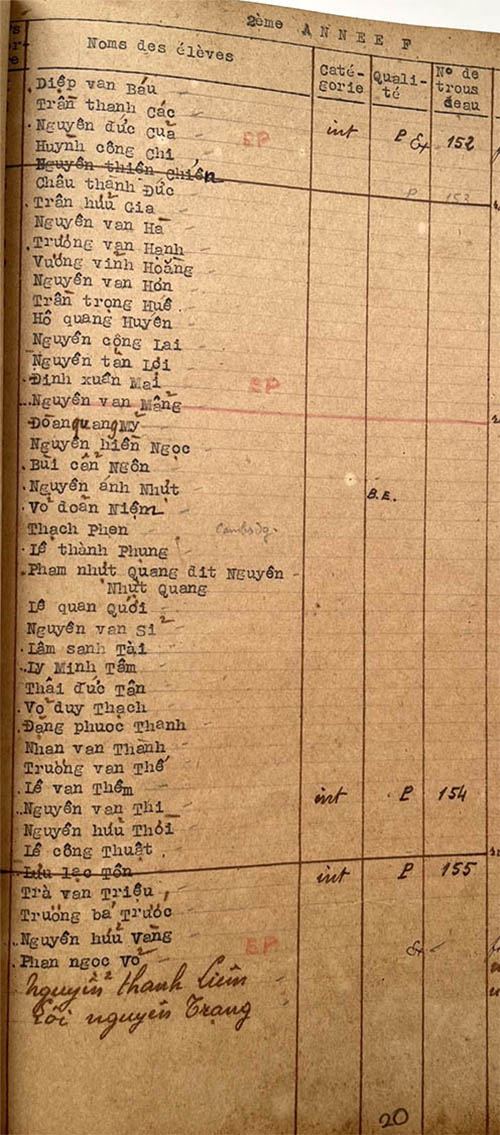 2ème ANNEE F
Noms des élèves
Caté-
gorie
Quali-
té
Nº de
trous
deau
Diệp van Báu
Trần thanh Các
Nguyễn đức Của int P Ex 152
Huynh công Chi
Nguyễn thiên Chiến
Châu thành Đức P 153
Trần hữu Gia
Nguyễn van Hà
Trương van Hạnh
Vương vinh Hoằng
Nguyễn van Hơn
Trần trọng Huê
Hồ quang Huyên
Nguyễn công Lai
Nguyễn tấn Lợi
Đinh xuân Mai
Nguyễn van Mảng
Đoàn quang Mỹ
Nguyễn hiền Ngọc
Bùi cẩn Ngôn
Nguyễn ánh Nhựt B.E.
Võ đoàn Niệm
Thạch Phen Cambodg.
Lê thành Phung
Pham nhựt Quang dit Nguyên
Nhựt Quang
Lê quan Quới
Nguyễn van Sỉ
Lâm sanh Tài
Ly Minh Tâm
Thái đức Tân
Vo duy Thạch
Đặng phuoc Thanh
Nhan van Thành
Trương van Thế
Lê van Thêm int P 154
Nguyễn van Thi
Nguyễn hữu Thới
Lê công Thuật
Lưu lạc Tôn int P 155
Trà van Triệu
Trương bá Trước
Nguyễn hữu Vàng
Phan ngọc Vỏ
nguyễn thanh Liêm
Lôi nguyên Trạng
20